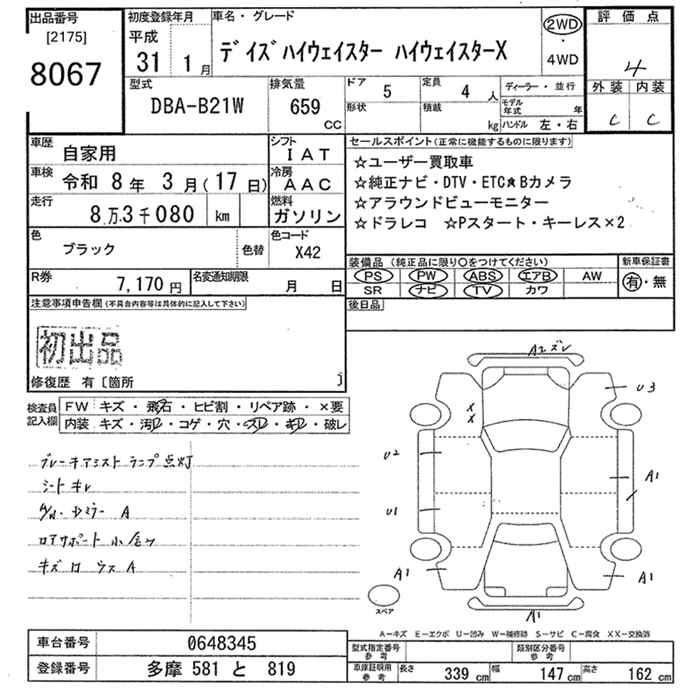 出品番号
[2175]
8067
初度登録年月
平成
31 1月
車名・グレード
デイズハイウェイスター ハイウェイスターX
2WD
・
4WD
評価点
4
外装 内装
C C
型式
DBA-B21W
排気量
659
CC
ドア
5
定員
4 人
形状
積載
kg
ディーラー・並行
モデル年式 年
ハンドル 左・右
車歴
自家用
シフト
IAT
車検
令和 8年 3月(17日)
冷房
AAC
走行
8万3千080 km
燃料
ガソリン
色
ブラック
色替
色コード
X42
R券
7,170円
名変通知期限
月 日
セールスポイント(正常に機能するものに限ります)
☆ユーザー買取車
☆純正ナビ・DTV・ETC★Bカメラ
☆アラウンドビューモニター
☆ドラレコ ☆Pスタート・キーレス×2
装備品(純正品に限り○をつけてください)
PS PW ABS エアB AW
SR ナビ TV カワ
新車保証書
有・無
後日品
注意事項申告欄(不具合内容等は具体的に記入して下さい)
初出品
修復歴 有〔箇所 〕
検査員記入欄
FW キズ・飛石・ヒビ割・リペア跡・×要
内装 キズ・汚レ・コゲ・穴・スレ・キレ・破レ
ブレーキアシストランプ点灯
シートキレ
ミラー A
コアサポート小
キズ
A2ズレ
U3
X
X
U2
A1
U1
A1
A1
A1
スペア
A-キズ E-エクボ U-凹み W-補修跡 S-サビ C-腐食 XX-交換済
車台番号
0648345
登録番号
多摩 581 と 819
型式指定番号
参考
類別区分番号
参考
車庫証明用
参考
長さ 339 cm 幅 147 cm 高さ 162 cm